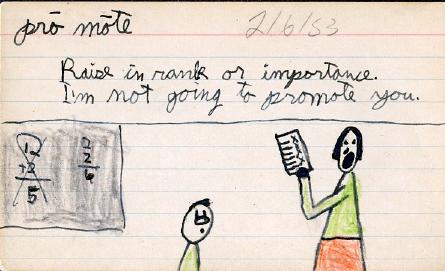 prō mōte 2/6/53
Raise in rank or importance.
I'm not going to promote you.
12
+2
5
2
2